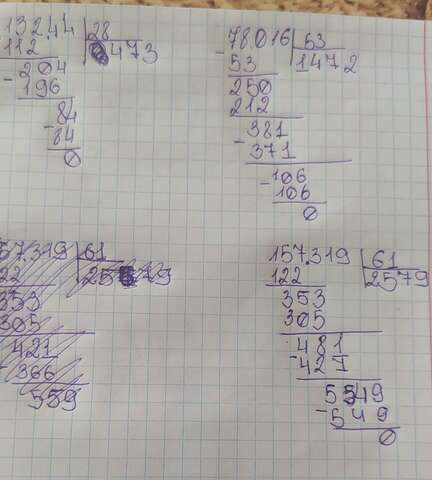 132.44 28
112 473
- 204
196
- 84
84
0
78.016 53
- 53 1472
250
212
381
- 371
- 106
106
0
57.319 61
22
353
305
421
366
559
157.319 61
122 2579
353
305
481
- 427
5549
- 549
0